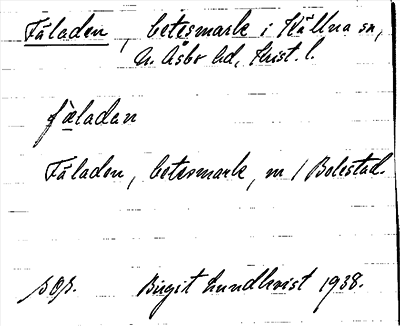 Fäladen, betesmark i Källna sn,
N. Åsbo hd, Krist. l.
fæladan
Fäladen, betesmark, m / Bolestad.
sOp. Birgit Lundkvist 1938.